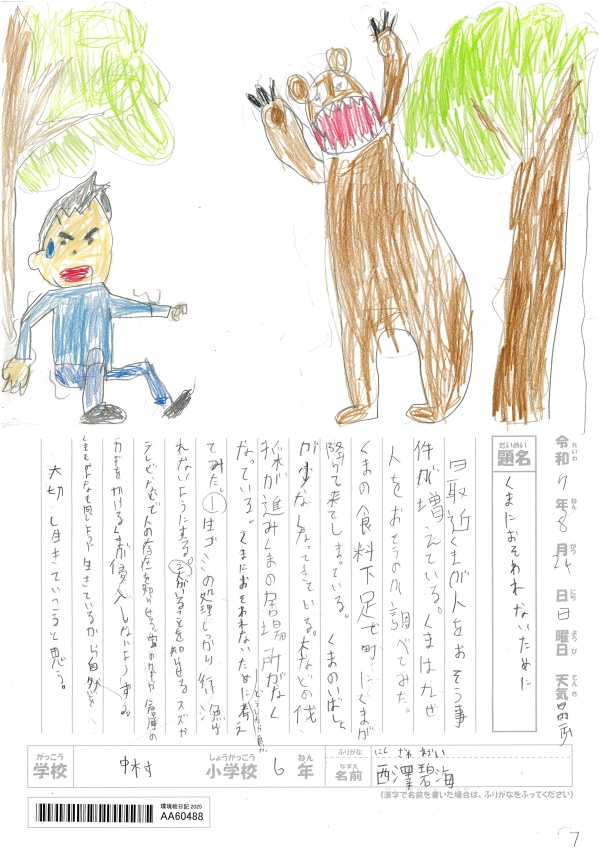 令和7年8月24日日曜日 天気
れいわ ねん がつ にち ようび てんき
だいめい
題名 くまにおそわれないために
最近くまが人をおそう事
件が増えている。くまはなぜ
人をおそうのか調べてみた。
くまの食料不足で町にくまが
降りて来てしまっている。くまのいばしょ
が少なくなってきている。木などの伐
採が進みくまの居場所がなく
なっている。くまにおそわれないために考え
どうしたら良いか
てみた。①生ゴミの処理しっかり行い漁ら
れないようにする。②がいることを知らせるスズか
テレビなどで人の存在を知らせる。家のカギか倉庫の
カギをかけるくまが侵入しないようする。
くまもがんなも同じように生きているから自然を
大切し生きていこうと思う。
がっこう しょうがっこう ねん
学校 中村 小学校 6年
ふりがな にし ざわ
なまえ
名前 西澤碧海
(漢字で名前を書いた場合は、ふりがなをふってください)
環境絵日記 2025
AA60488
7